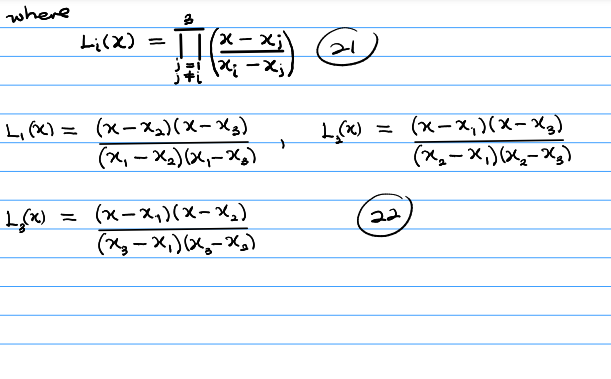 where
Lᵢ(x) = ∏_{j=1, j≠i}^{3} ((x − xⱼ)/(xᵢ − xⱼ)) (21)
L₁(x) = (x − x₂)(x − x₃) / (x₁ − x₂)(x₁ − x₃) , L₂(x) = (x − x₁)(x − x₃) / (x₂ − x₁)(x₂ − x₃)
L₃(x) = (x − x₁)(x − x₂) / (x₃ − x₁)(x₃ − x₂) (22)